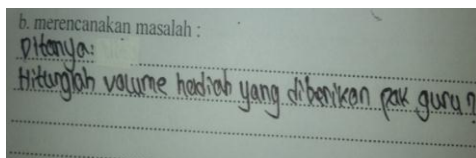 b. merencanakan masalah :
Ditanya:
Hitunglah volume hadiah yang diberikan pak guru?